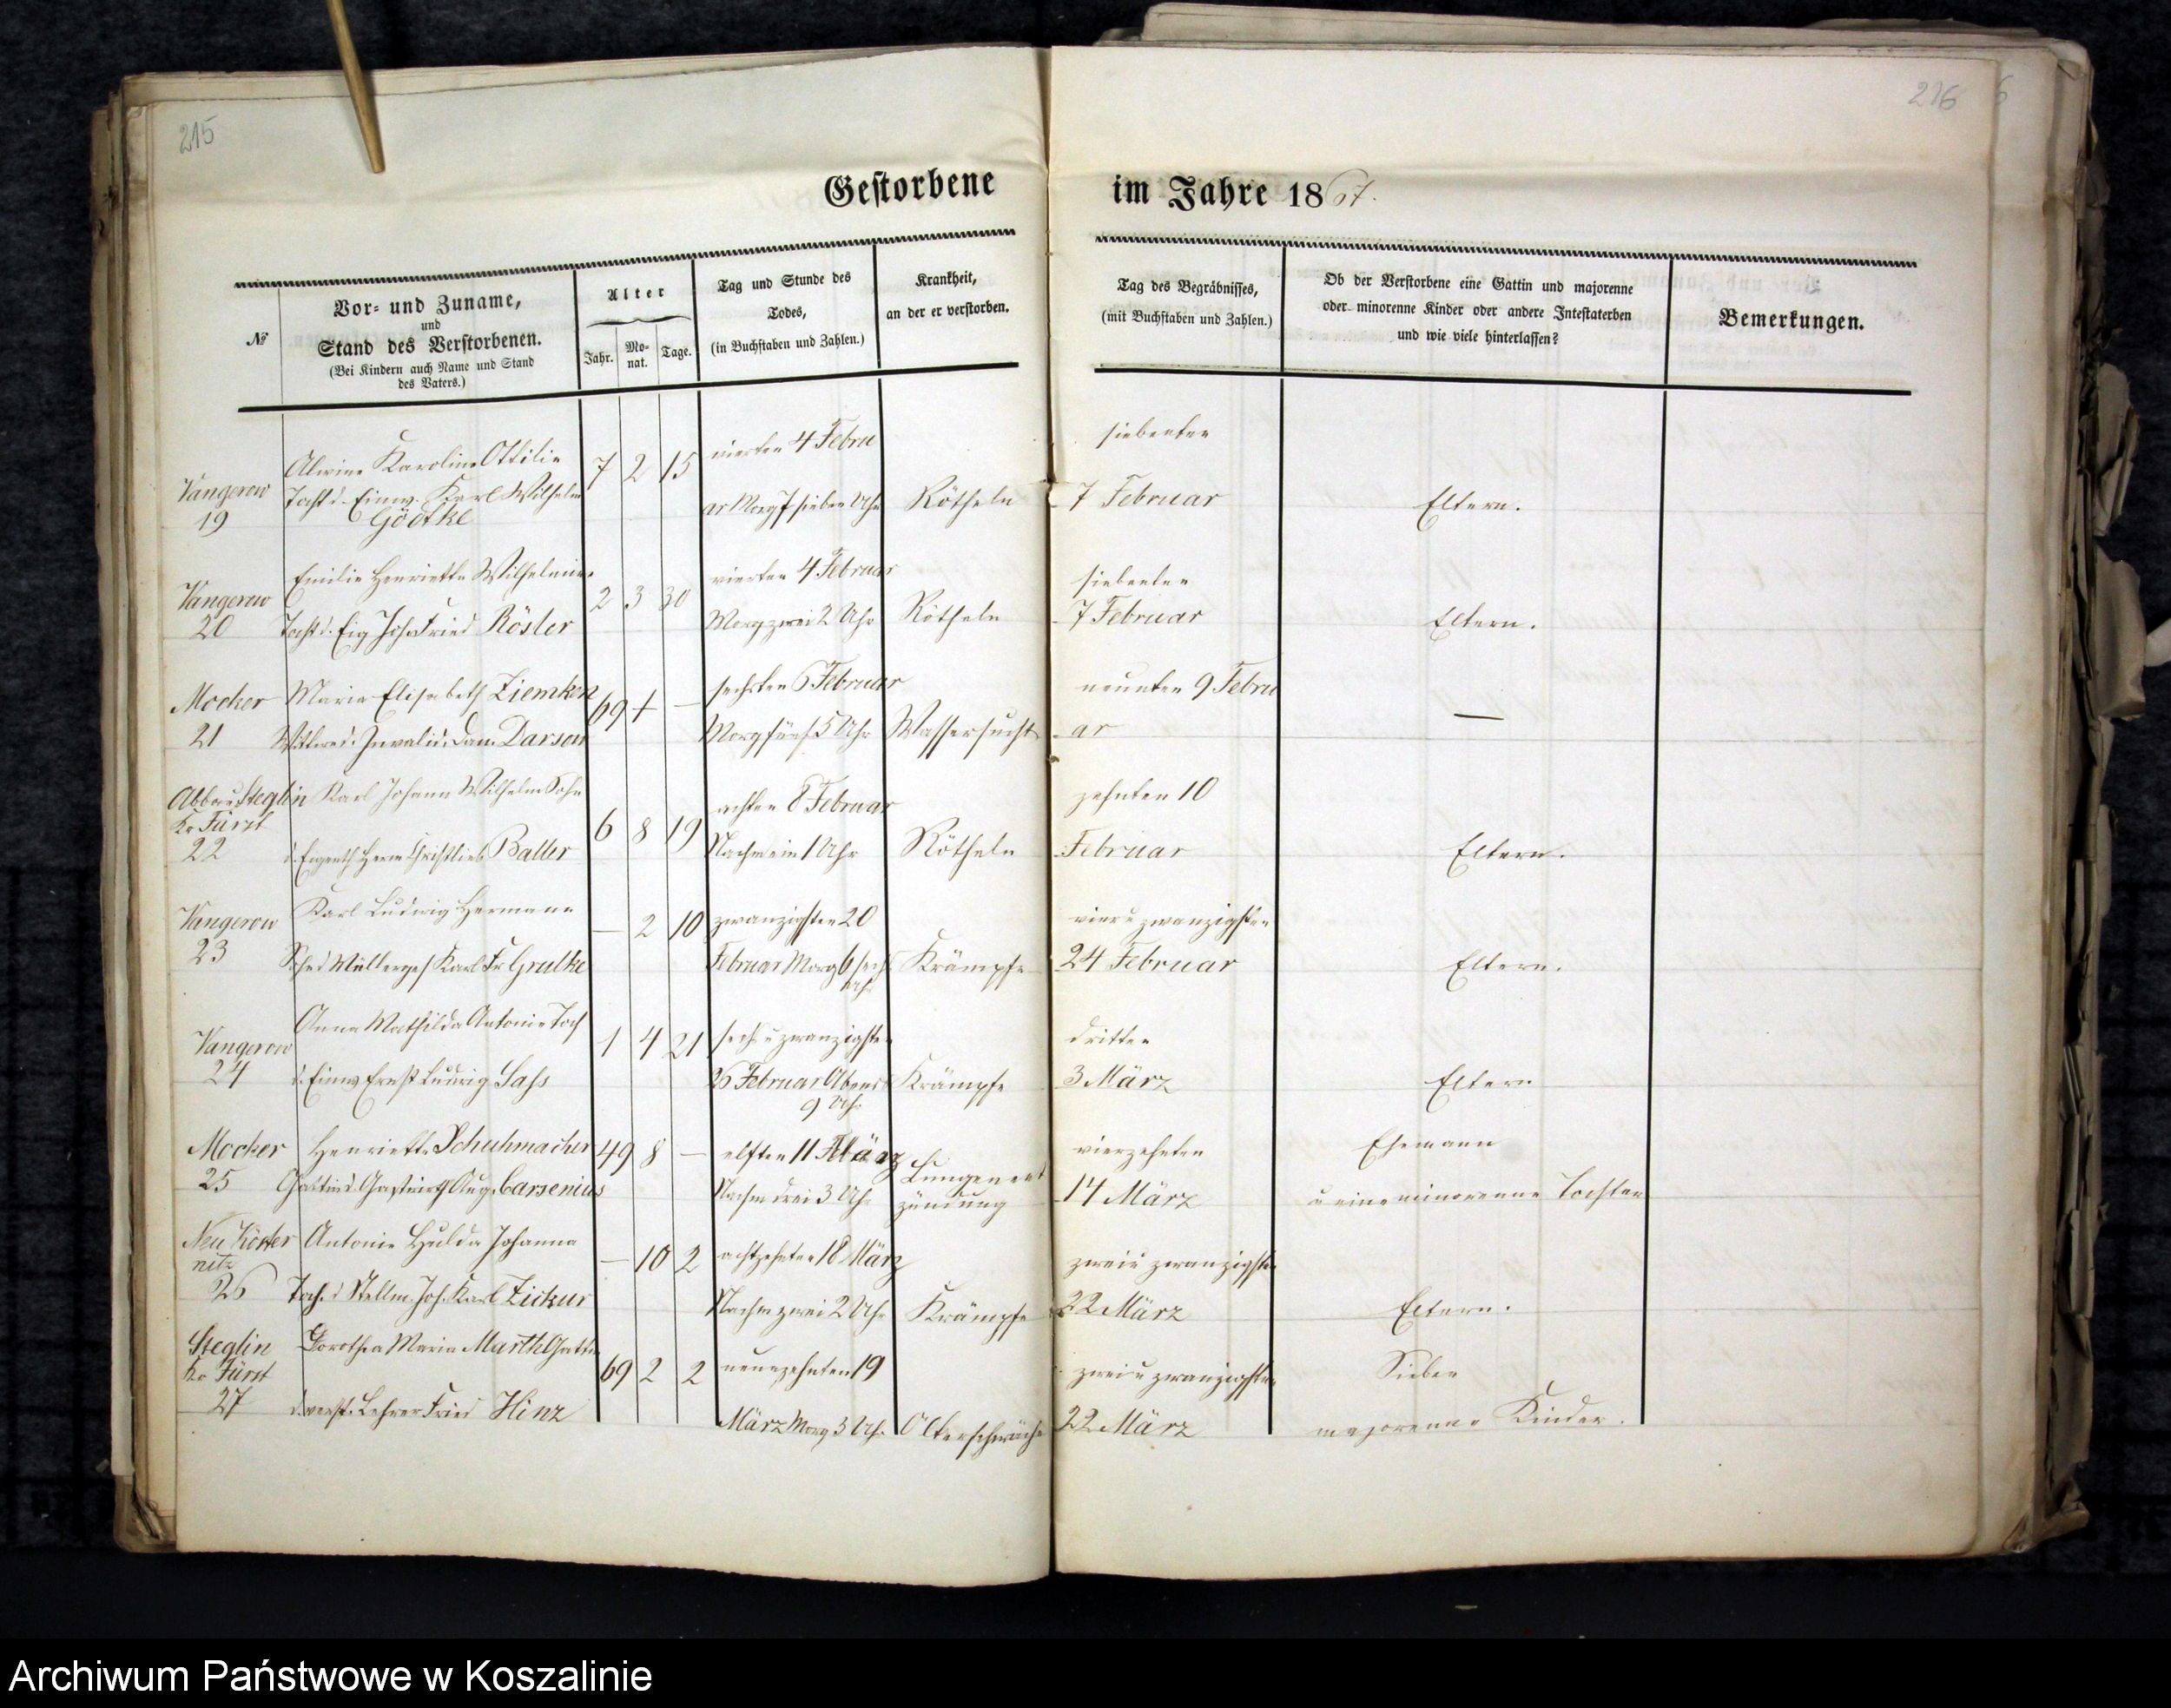 215
216
Gestorbene
im Jahre 1867.
№
Vor- und Zuname,
und
Stand des Verstorbenen.
(Bei Kindern auch Name und Stand
des Vaters.)
Alter
Jahr.
Mo-
nat.
Tage.
Tag und Stunde des
Todes,
(in Buchstaben und Zahlen.)
Krankheit,
an der er verstorben.
Tag des Begräbnisses,
(mit Buchstaben und Zahlen.)
Ob der Verstorbene eine Gattin und majorenne
oder minorenne Kinder oder andere Intestaterben
und wie viele hinterlassen?
Bemerkungen.
Vangerow
19
Alwine Karoline Ottilie
Tocht d. Einw. Karl Wilhelm
Gödtke
7 2 15
vierten 4 Febru
ar Morg 7 sieben Uhr
Rötheln
siebenten
7 Februar
Eltern.
Vangerow
20
Emilie Henriette Wilhelmine
Tocht d. Eig Joh Fried Rösler
2 3 30
vierten 4 Februar
Morg zwei 2 Uhr
Rötheln
siebenten
7 Februar
Eltern.
Mocker
21
Marie Elisabeth Ziemken
Wittwe d. Invalid. Dan. Darson
69 + —
sechsten 6 Februar
Morg fünf 5 Uhr
Wassersucht
neunten 9 Febru
ar
—
Abbau Steglin
Kr Fürst
22
Karl Johann Wilhelm Sohn
d. Eigenth Herm Christlieb Baller
6 8 19
achten 8 Februar
Nachm ein 1 Uhr
Rötheln
zehnten 10
Februar
Eltern.
Vangerow
23
Karl Ludwig Hermann
Sohn d Müllerges Karl Fr Grulke
— 2 10
zwanzigsten 20
Februar Morg 6 sechs
Uhr
Krämpfe
vier u zwanzigsten
24 Februar
Eltern.
Vangerow
24
Anna Mathilda Antonie Toch
d. Einw Ernst Ludwig Sass
1 4 21
sechs u zwanzigsten
26 Februar Abends
9 Uhr
Krämpfe
dritten
3 März
Eltern
Mocker
25
Henriette Schuhmacher
Gattin d. Gastwirth Aug. Carsenius
49 8 —
elften 11 März
Nachm drei 3 Uhr
Lungenent
zündung
vierzehnten
14 März
Ehemann
u eine minorenne Tochter
Neu Köster
nitz
26
Antonie Hulda Johanna
Toch. d Stellm. Joh. Karl Zickur
— 10 2
achtzehnten 18 März
Nachm zwei 2 Uhr
Krämpfe
zwei u zwanzigsten
22 März
Eltern.
Steglin
Kr Fürst
27
Dorothea Maria Marth Gattin
d. verst. Lehrer Fried Hinz
69 2 2
neunzehnten 19
März Morg 3 Uhr
Alterschwäche
zwei u zwanzigsten
22 März
Sieben
majorenne Kinder.
Archiwum Państwowe w Koszalinie